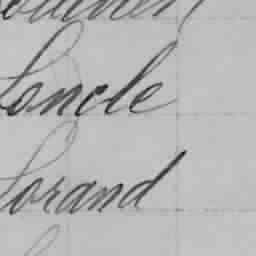 Loncle
Lorand